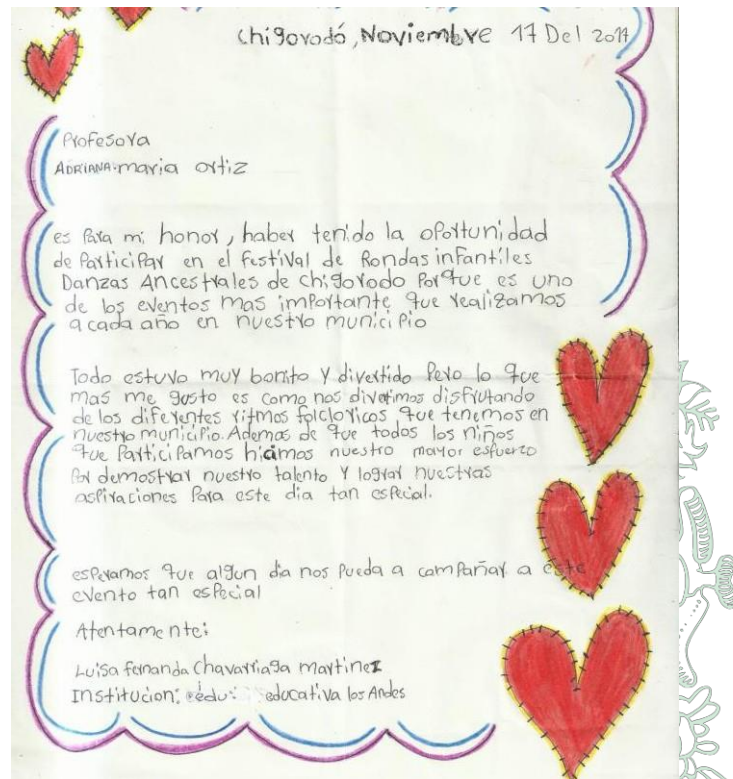 Chigorodó, Noviembre 17 Del 2011
Profesora
ADRIANA maria ortiz
es Para mi honor, haber tenido la oPortunidad
de ParticiPar en el festival de Rondas infantiles
Danzas Ancestrales de chigorodo Porque es uno
de los eventos mas imPortante que realizamos
a cada año en nuestro municiPio
Todo estuvo muy bonito y divertido Pero lo que
mas me gusto es como nos divertimos disfrutando
de los diferentes ritmos folcloricos que tenemos en
nuestro municiPio. Ademas de que todos los niños
que ParticiPamos hiamos nuestro mayor esfuerzo
Por demostrar nuestro talento y lograr nuestras
asPiraciones Para este dia tan esPecial.
esPeramos que algun dia nos Pueda a camPañar a este
evento tan esPecial
Atentamente:
Luisa fernanda Chavarriaga martinez
Institucion: eedu: educativa los Andes